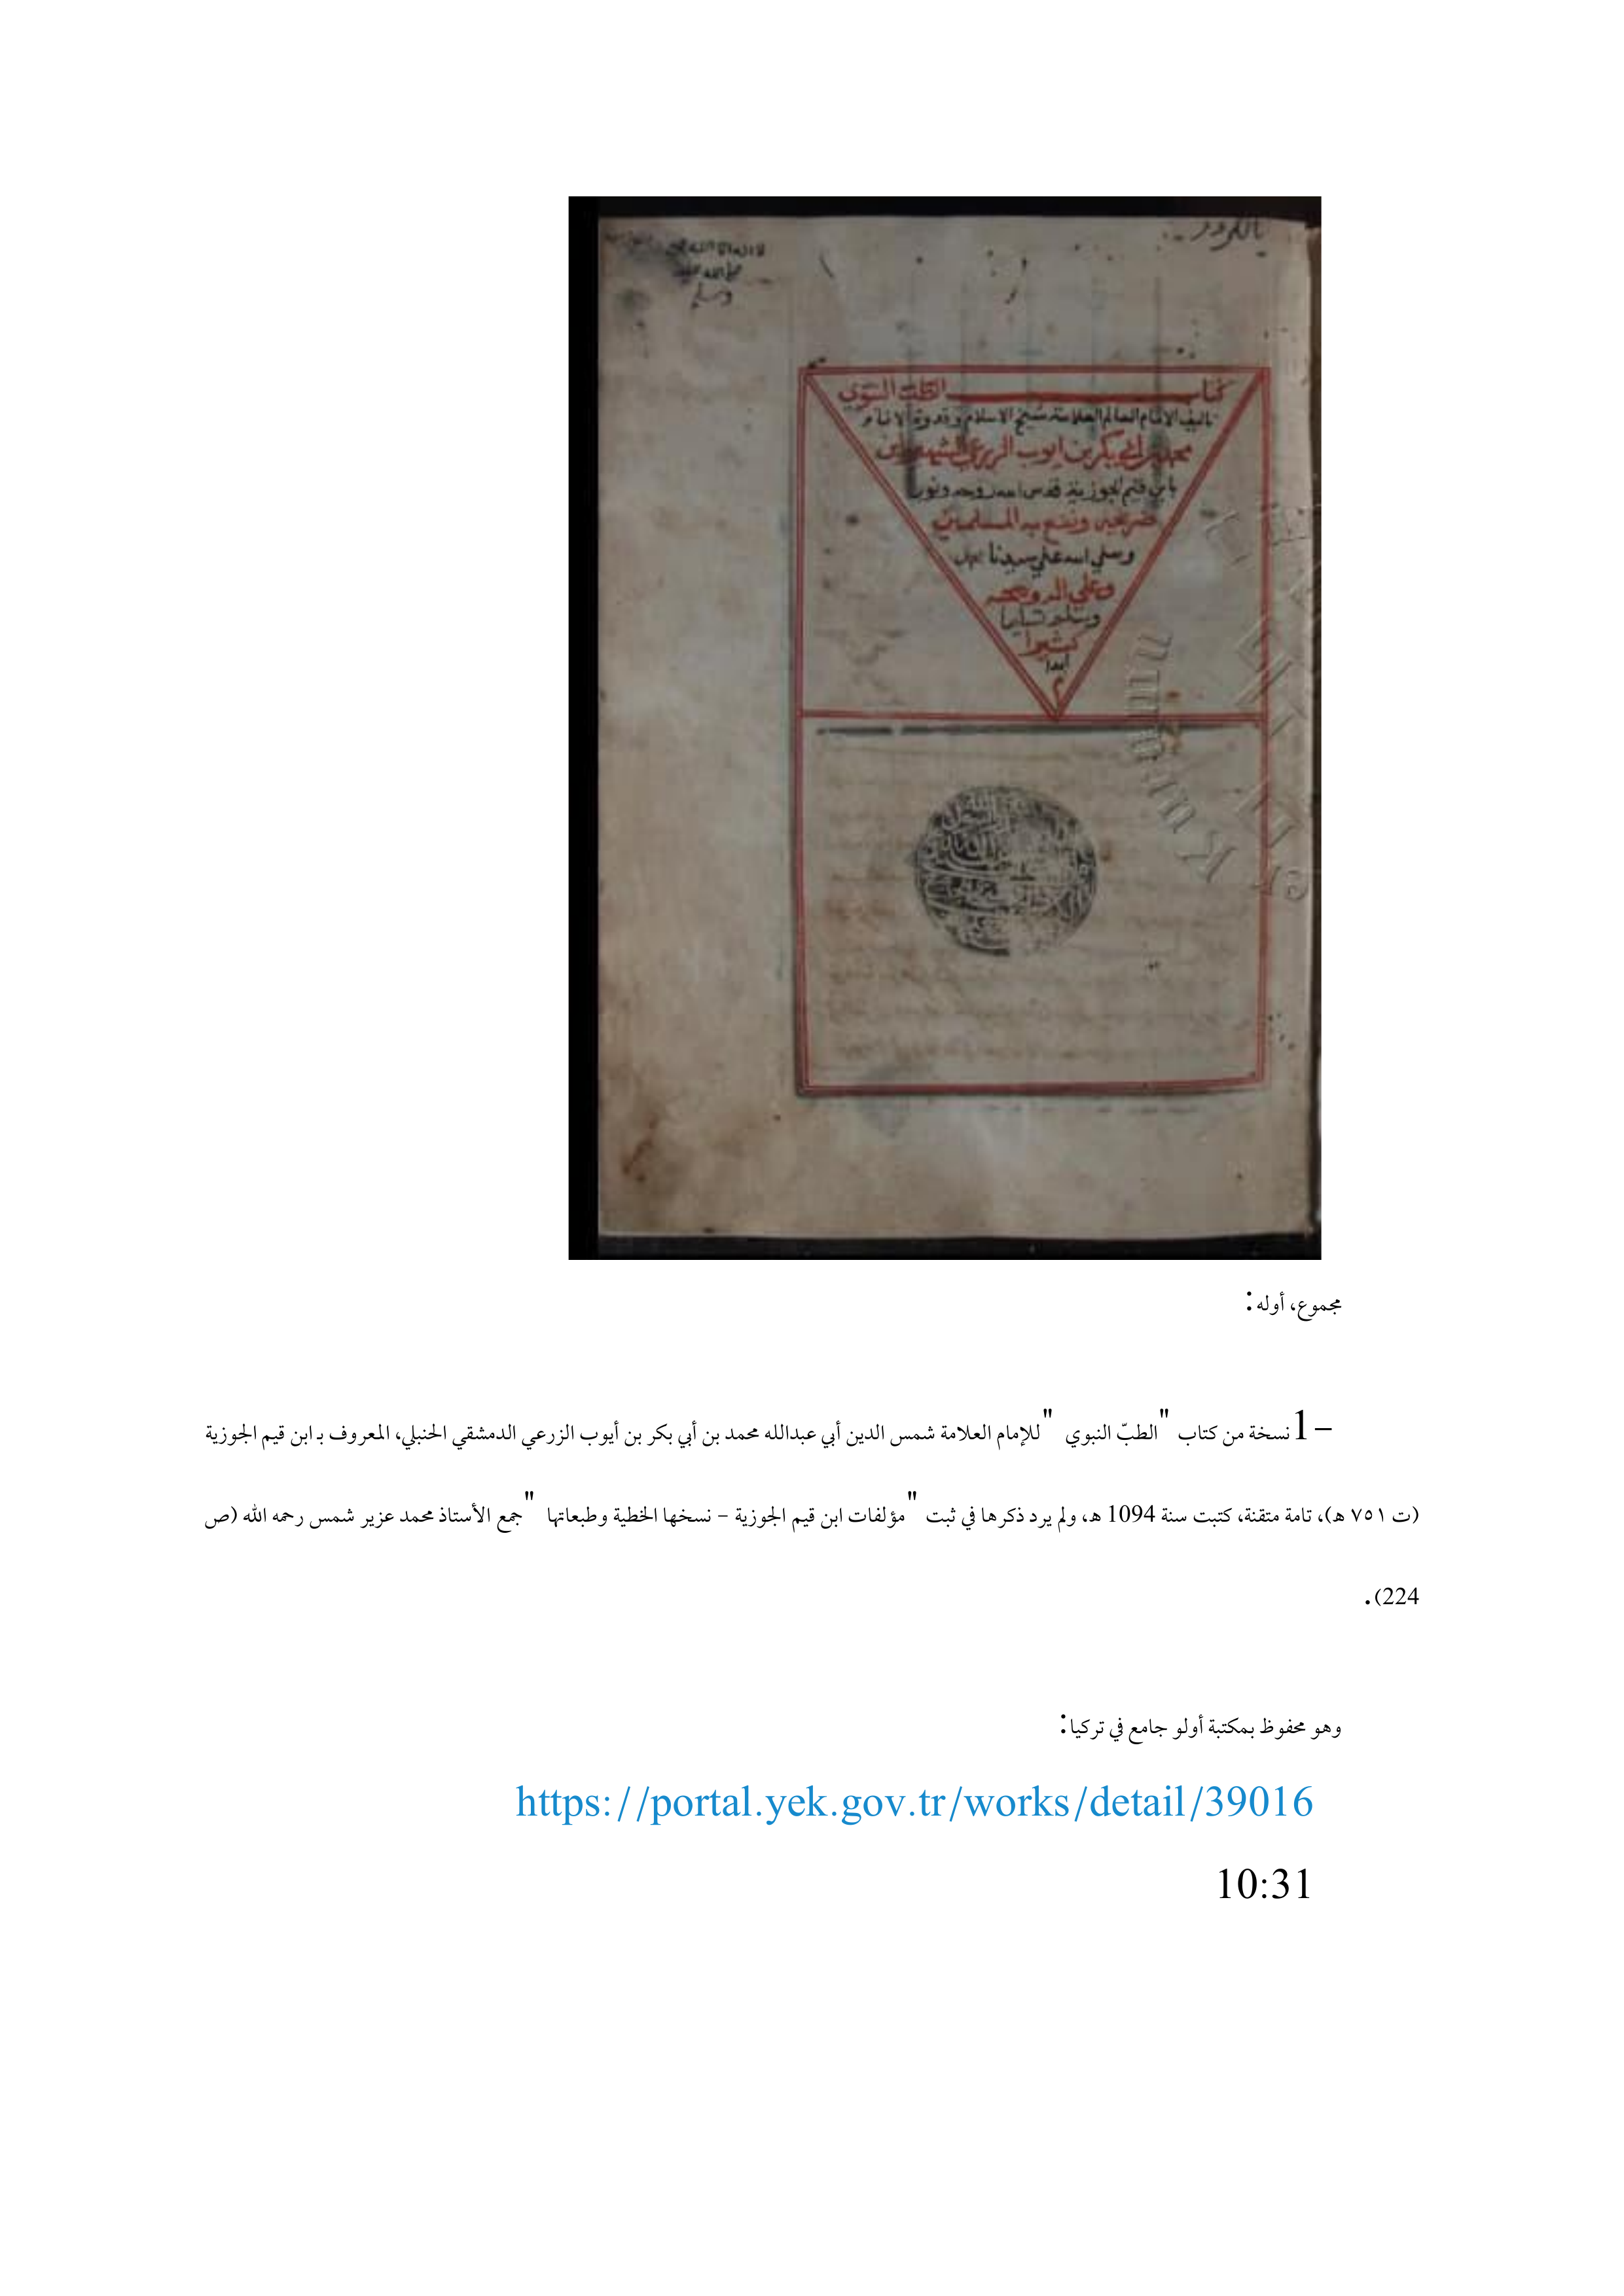 لا اله الا الله محمد
صلى الله عليه
وسلم
كتاب الطب النبوي
تاليف الامام العالم العلامة شيخ الاسلام وقدوة الانام
محمد بن ابي بكر بن ايوب الزرعي الشهير
بابن قيم الجوزية قدس الله روحه ونور
ضريحه ونفع به المسلمين
وصلي الله علي سيدنا محمد
وعلي اله وصحبه
وسلم تسليما
كثيرا
ابدا
م
مجموع، أوله:
1- نسخة من كتاب "الطبّ النبوي" للإمام العلامة شمس الدين أبي عبدالله محمد بن أبي بكر بن أيوب الزرعي الدمشقي الحنبلي، المعروف بـ ابن قيم الجوزية
(ت ٧٥١ هـ)، تامة متقنة، كتبت سنة 1094 هـ، ولم يرد ذكرها في ثبت "مؤلفات ابن قيم الجوزية – نسخها الخطية وطبعاتها" جمع الأستاذ محمد عزير شمس رحمه الله (ص
224).
وهو محفوظ بمكتبة أولو جامع في تركيا:
https://portal.yek.gov.tr/works/detail/39016
10:31